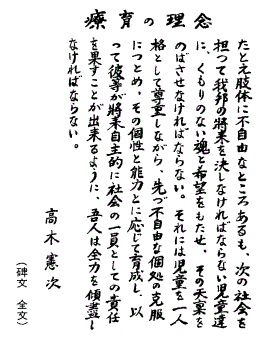 療育の理念
たとえ肢体に不自由なところあるも、次の社会を
担つて我邦の将来を決しなければならない児童達
に、くもりのない魂と希望をもたせ、その天稟を
のばさせなければならない。それには児童を一人
格として尊重しながら、先づ不自由な個処の克服
につとめ、その個性と能力とに応じて育成し、以
って彼等が将来自主的に社会の一員としての責任
を果すことが出来るように、吾人は全力を傾盡し
なければならない。
高木憲次
（碑文 全文）